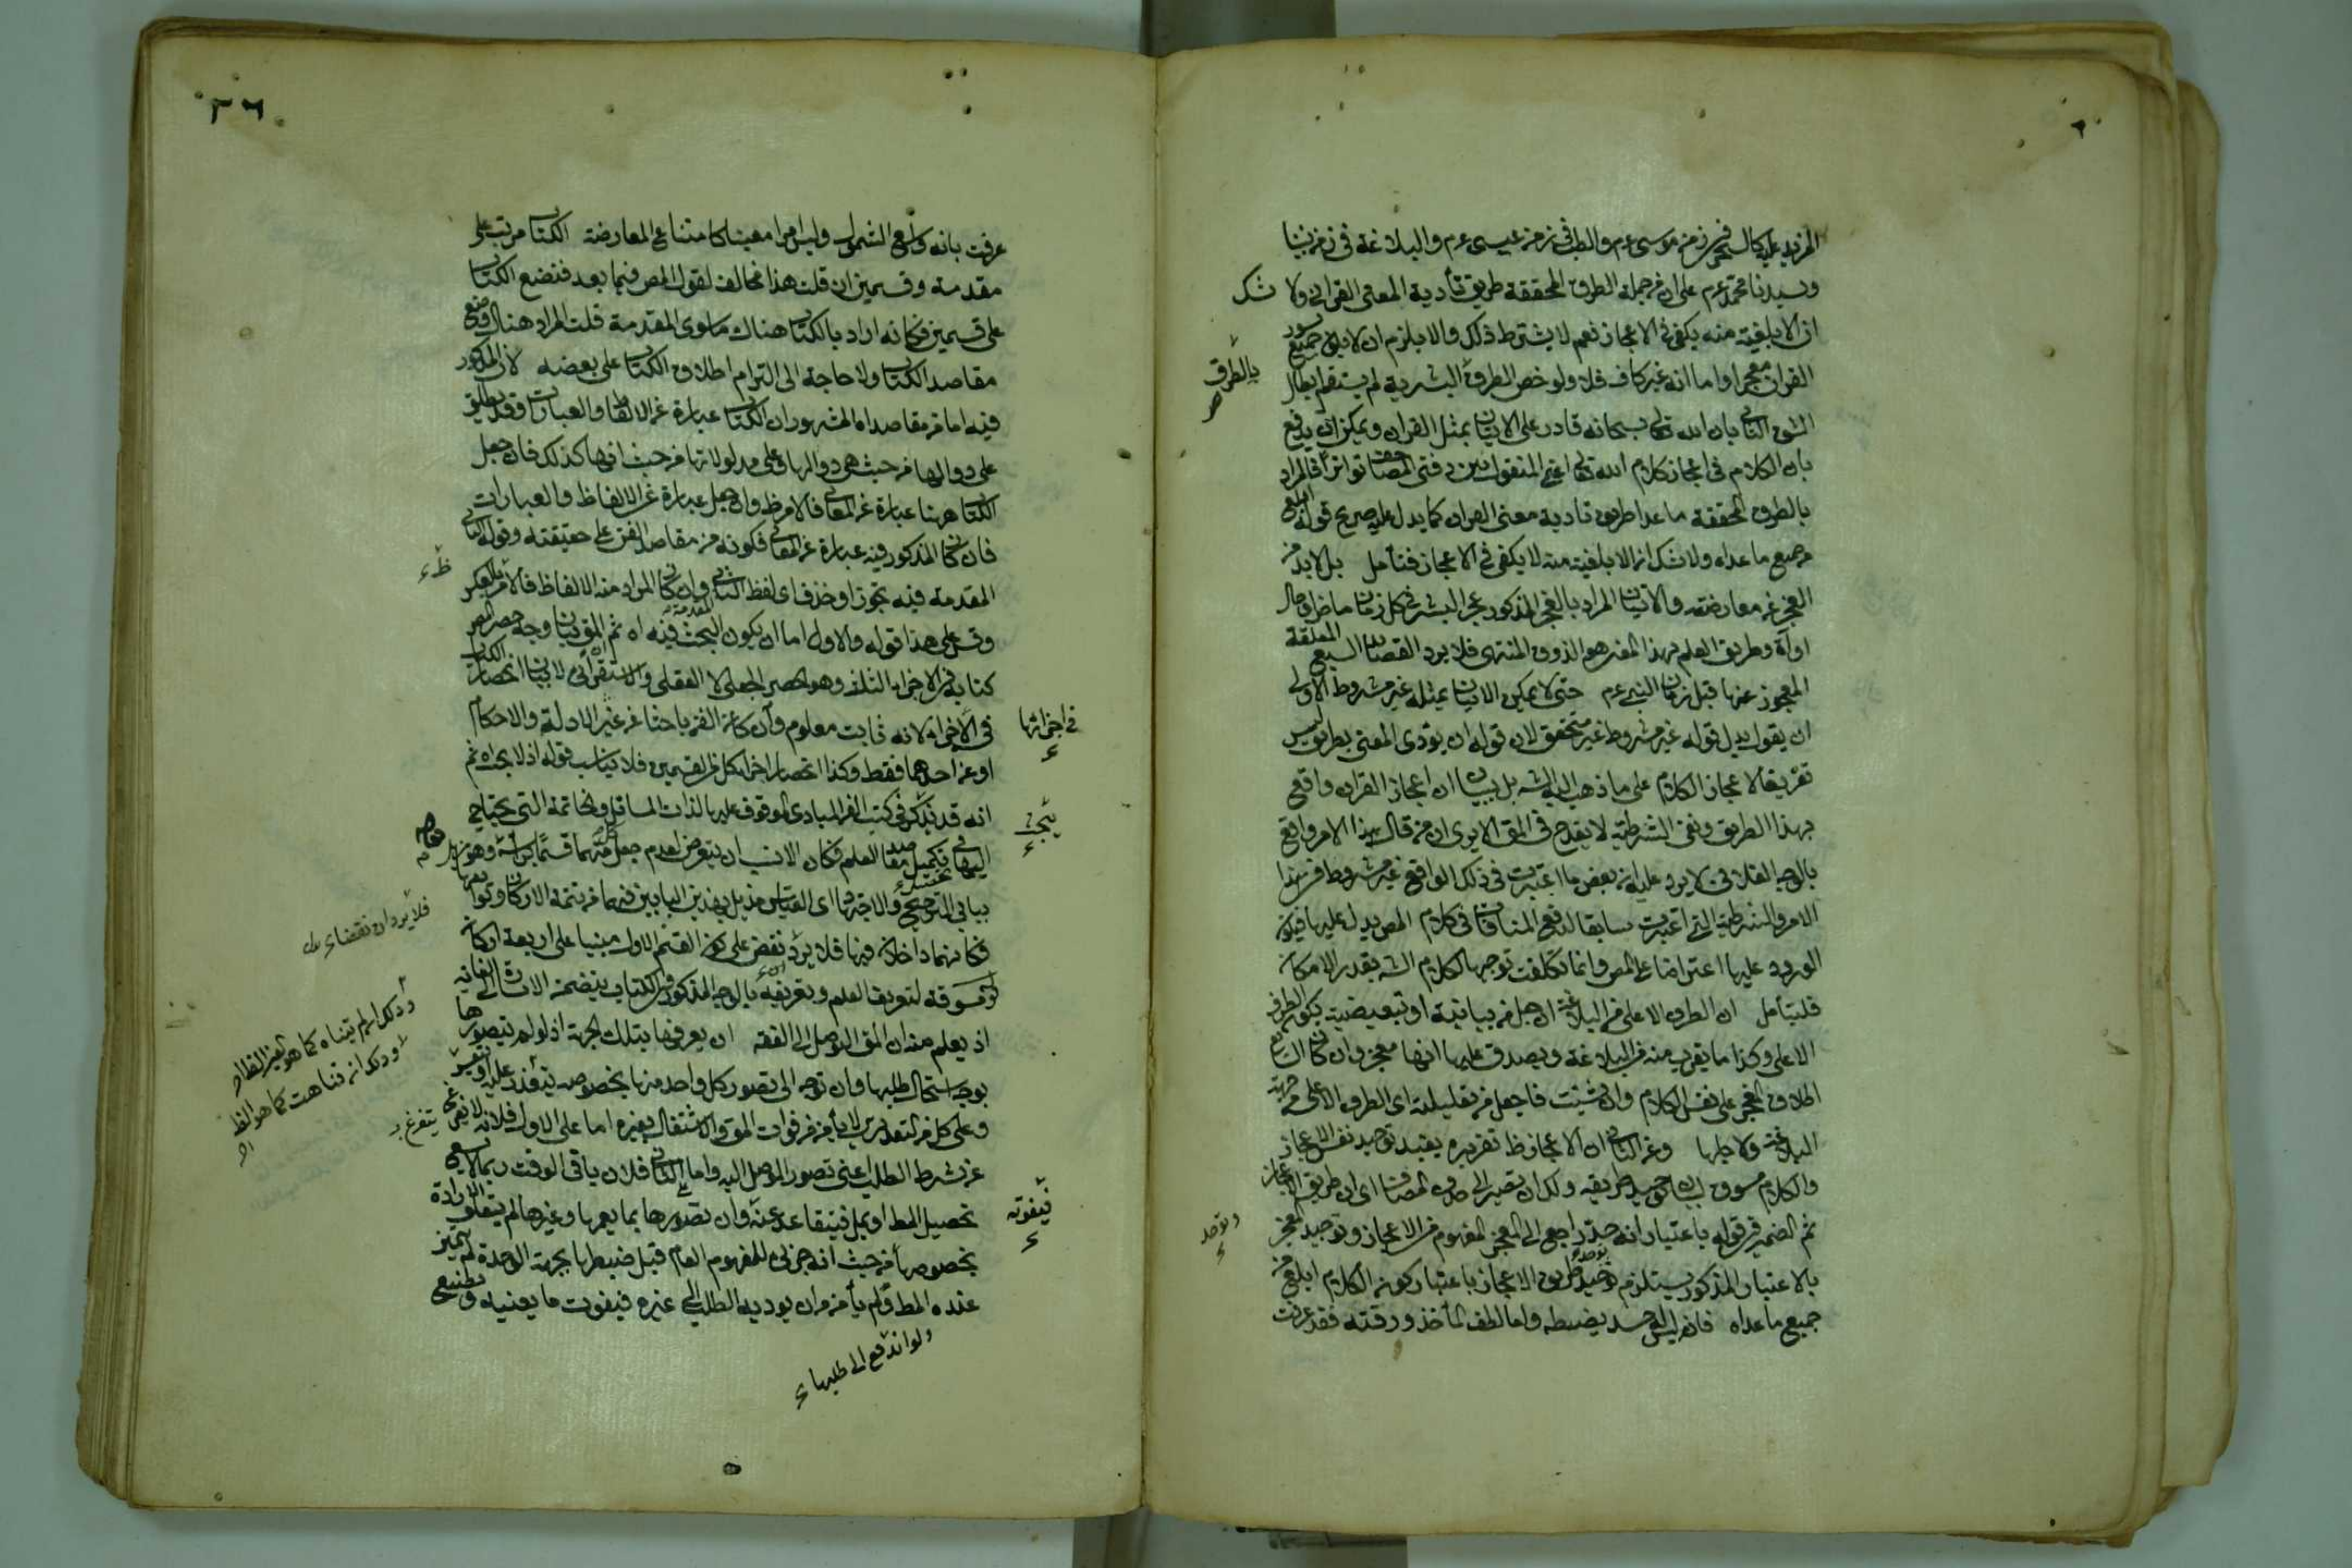 المزيد عليه كالسحر في زمن موسى عم والطب في زمن عيسى عم والبلاغة في زمن نبينا
وسيدنا محمد عم على ان من جملة الطرق المحققة طريق تأدية المعنى القرآني ولا شك
ان الابلغية منه يكفي في الاعجاز نعم لا يشترط ذلك والا يلزم ان لا يكون جميع سور
القرآن معجزا واما انه غير كاف فلا ولو خص الطرق البشرية لم يستقم ابطال
بالطرق
الشق الثاني بان الله تعالى سبحانه قادر على الاتيان بمثل القرآن ويمكن ان يدفع
بان الكلام في اعجاز كلام الله تعالى اعني المنقول بين دفتي المصاحف تواترا فالمراد
بالطرق المحققة ما عدا طريق تأدية معنى القرآن كما يدل عليه صريح قوله ابلغ
من جميع ما عداه ولا شك ان الابلغية منه لا يكفي في الاعجاز فتأمل بل لا بد من
العجز عن معارضته والاتيان المراد بالعجز المذكور عجز البشر في كل زمان ماض او حال
او آت وطريق العلم بهذا العجز هو الذوق المنتهى فلا يرد القصائد السبع المعلقة
المعجوز عنها قبل زمان النبي عم حتى لا يمكن الاتيان بمثله غير مشروط الاولى
ان يقول بدل قوله غير مشروط غير متحقق لان قوله ان يؤدى المعنى بطريق ليس
تعريفا لاعجاز الكلام على ما ذهب اليه الشه بل بيان ان اعجاز القرآن واقع
بهذا الطريق ونفى الشرطية لا يقدح في المق الا يرى ان من قال هذا الامر واقع
بالوجه الفلاني لا يرد عليه ان بعض ما اعتبرت في ذلك الواقع غير مشروط في هذا
الامر والشرطية التي اعتبرت سابقا لدفع المنافاة في كلام المص يدل عليها فيكون
الورود عليها اعتراضا على المص وانما تكلفت توجيها لكلام الشه بقدر الامكان
فليتأمل ان الطرف الاعلى من البلاغة ان جعل من بيانية او تبعيضية يكون الطرف
الاعلى وكذا ما يقرب منه من البلاغة ويصدق عليها انها معجز وان كان الشائع
اطلاق المعجز على نفس الكلام وان شئت فاجعل من تعليلية اي الطرف الاعلى من جهة
البلاغة ولاجلها وعن الثاني ان الاعجاز وظ تقريره يفيد توحيد نفس الاعجاز
والكلام مسوق لبيان توحيد طريقه ولك ان تصير الى حذف المضاف اي ان طريق الاعجاز
ثم الضمير في قوله باعتبار انه حد راجع الى المعجز المفهوم من الاعجاز وتوحيد المعجز
وتوحد
بالاعتبار المذكور يستلزم توحيد طريق الاعجاز باعتبار كونه الكلام ابلغ من
جميع ما عداه فانه ليس له حد يضبطه واما لطف المأخذ ورقته فقد عرفت
٣٦
عرفت بانه واسع الشمول وليس امرا معينا كامتناع المعارضة الكتاب مرتب على
مقدمة وقسمين ان قلت هذا مخالف لقول المص فيما بعد فنضع الكتاب
على قسمين فكانه اراد بالكتاب هناك ما سوى المقدمة قلت المراد هناك وضع
مقاصد الكتاب ولا حاجة الى التزام اطلاق الكتاب على بعضه لان المذكور
فيه اما من مقاصد اه المشهور ان الكتاب عبارة عن الالفاظ والعبارات وقد يطلق
على دوالها من حيث هي دوالها وعلى مدلولاتها من حيث انها كذلك فان جعل
الكتاب ههنا عبارة عن المعاني فالامر ظ وان جعل عبارة عن الالفاظ والعبارات
فان كان المذكور فيه عبارة عن المعاني فكونه من مقاصد الفن على حقيقته وقوله الثاني
المقدمة فيه تجوز او حذف اي لفظ الثاني وان كان المراد منه الالفاظ فالامر بالعكس
وقس على هذا قوله والاول اما ان يكون البحث فيه اه ثم المق بيان وجه حصر المص
كتابه في الاجزاء الثلثة وهو الحصر الجعلي لا العقلي والاستقرائي لا بيان انحصار الكتاب
في الاجزاء لانه ثابت معلوم وان كان الفن باحثا عن غير الادلة والاحكام
في اجزائها
او عن احدهما فقط وكذا انحصار اجزاء كل من القسمين فلا يناسب قوله اذ لا يجزاه ثم
انه قد يذكر في كتب الفن المبادي الموقوف عليها لذات المسائل والخاتمة التي يحتاج
اليها في تكميل مقاصد العلم فكان الانسب ان يتعرض لعدم جعل كل منهما قسما برأسه وهو
ببابي الترجيح والاجتهاد اي القياس مذيل بهذين البابين فهما من تتمة الاركان وتوابعها
فكانهما داخلان فيها فلا يرد نقض على كون القسم الاول مبنيا على اربعة اركان
فلا يرد ان نقضا
مسوقة لتعريف العلم وتعريفه بالوجه المذكور في الكتاب يتضمن الاشارة الى الغاية
اذ يعلم منه ان المق التوصل الى الفقه ان يعرفها بتلك الجهة اذ لو لم يتصورها
بوجه استحال طلبها وان توجه الى تصور كل واحد منها بخصوصه يتعذر عليه او يتعسر
وعلى كل من التقديرين لا يأمن من فوات المق والاشتغال بغيره اما على الاول فلانه لا يفرغ
عن شرط الطلب اعني تصور الموصل اليه واما الثاني فلان باقي الوقت ربما لا يسع
تحصيل المط او يمل فيتقاعد عنه وان تصورها بما يعمها وغيرها لم يتعلق الارادة
فيفوته
بخصوصها من حيث انه جزئي للمفهوم العام قبل ضبطها بجهة الوحدة لم يتميز
عنده المط ولم يأمن من ان يوديه الطلب الى غيره فيفوت ما يعنيه ويضيع
ولو اندفع الى طلبها